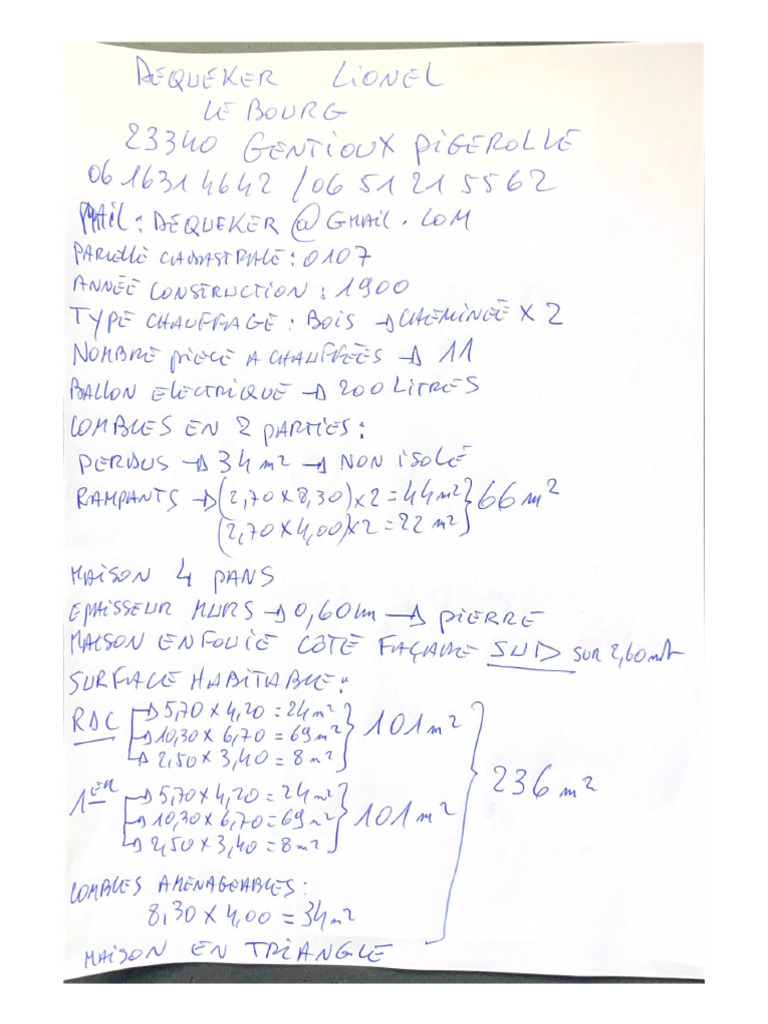 DEQUEKER LIONEL
LE BOURG
23340 GENTIOUX PIGEROLLE
06 16 31 46 42 / 06 51 21 55 62
MAIL : DEQUEKER @ GMAIL . COM
PARCELLE CADASTRALE : 0107
ANNÉE CONSTRUCTION : 1900
TYPE CHAUFFAGE : BOIS → CHEMINÉE X 2
NOMBRE PIECE A CHAUFFÉES → 11
BALLON ELECTRIQUE → 200 LITRES
COMBLES EN 2 PARTIES :
PERDUS → 34 m² → NON ISOLÉ
RAMPANTS → (2,70 X 8,30) X 2 = 44 m² } 66 m²
(2,70 X 4,00) X 2 = 22 m²
MAISON 4 PANS
EPAISSEUR MURS → 0,60 cm → PIERRE
MAISON ENFOUIE CÔTÉ FAÇADE SUD SUR 2,60
SURFACE HABITABLE :
RDC → 5,70 X 4,20 = 24 m²
→ 10,30 X 6,70 = 69 m² } 101 m²
→ 2,50 X 3,40 = 8 m²
1ER → 5,70 X 4,20 = 24 m²
→ 10,30 X 6,70 = 69 m² } 101 m²
→ 2,50 X 3,40 = 8 m²
236 m²
COMBLES AMENAGEABLES :
8,30 X 4,00 = 34 m²
MAISON EN TRIANGLE